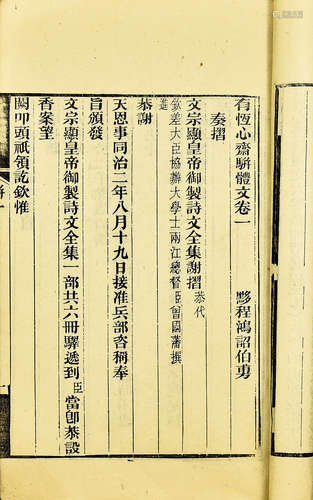 有恆心齋駢體文卷一 黟程鴻詔伯旉
奏摺
文宗顯皇帝御製詩文全集謝摺 恭代
欽差大臣協辦大學士兩江總督臣曾國藩撰
進
恭謝
天恩事同治二年八月十九日接准兵部咨稱奉
旨頒發
文宗顯皇帝御製詩文全集一部共六冊驛遞到臣當卽恭設
香案望
闕叩頭祇領訖欽惟